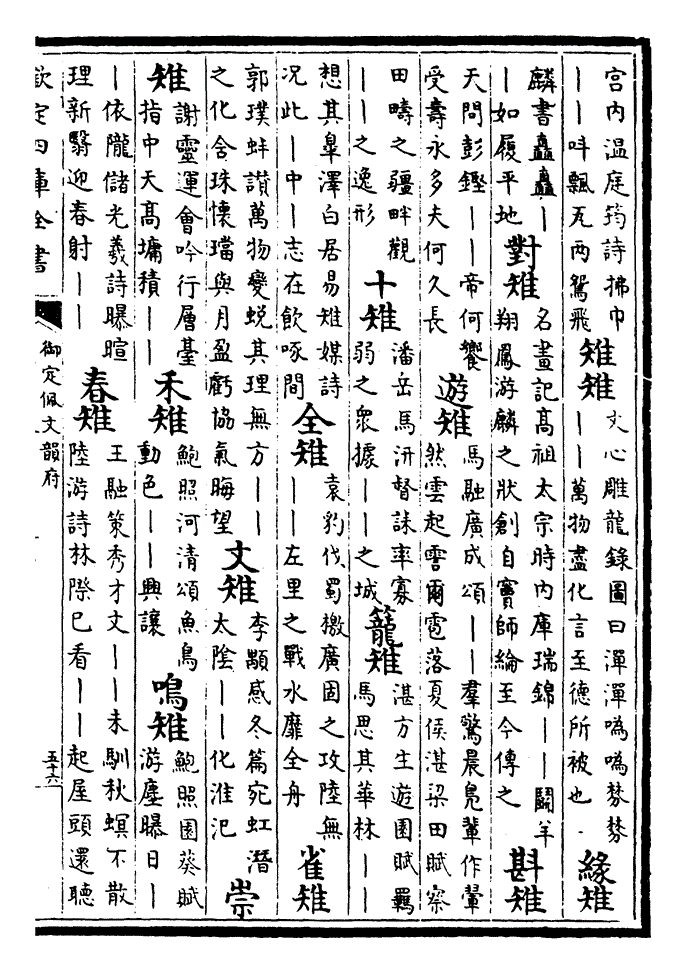 宮内温庭筠詩拂巾
｜｜呌飄瓦兩鴛飛
雉雉
文心雕龍錄圖曰潬潬噅噅棼棼
｜｜萬物盡化言至德所被也
緣雉
麟書矗矗｜
｜如履平地
對雉
名畫記髙祖太宗時内庫瑞錦｜｜鬭羊
翔鳳游麟之狀創自竇師綸至今傳之
斟雉
天問彭鏗｜｜帝何饗
受壽永多夫何久長
遊雉
馬融廣成頌｜｜羣驚晨鳬輩作翬
然雲起霅爾雹落夏侯湛梁田賦察
田疇之疆畔觀
｜｜之逸形
十雉
潘岳馬汧督誄率寡
弱之衆據｜｜之城
籠雉
湛方生遊園賦羈
馬思其華林｜｜
想其臯澤白居易雉媒詩
况此｜中｜志在飲啄間
全雉
袁豹伐蜀檄廣固之攻陸無
｜｜左里之戰水靡全舟
雀雉
郭璞蚌讚萬物變蛻其理無方｜｜
之化含珠懷璫與月盈虧協氣晦望
文雉
李顒感冬篇宛虹潛
太陰｜｜化淮汜
崇
雉
謝靈運會吟行層臺
指中天髙墉積｜｜
禾雉
鮑照河清頌魚鳥
動色｜｜興讓
鳴雉
鮑照園葵賦
游塵曝日｜
｜依隴儲光羲詩曝暄
理新翳迎春射｜｜
春雉
王融策秀才文｜｜未馴秋螟不散
陸游詩林際已看｜｜起屋頭還聽
欽定四庫全書
御定佩文韻府
五十六